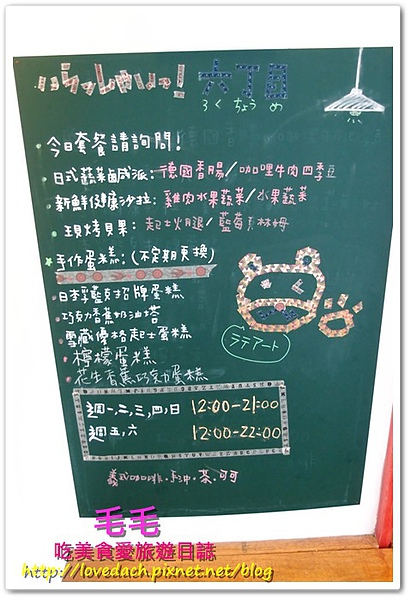 いらっしゃいっ! 六丁目
ろく ちょう め
今日套餐請詢問!
日式蔬菜鹹派:德國香腸/咖哩牛肉四季豆
新鮮健康沙拉:雞肉水果蔬菜/水果蔬菜
現烤貝果:起士火腿/藍莓 萊姆
手作蛋糕:(不定期更換)
日本 招牌蛋糕
巧克香蕉奶油塔
雪藏優格起士蛋糕
檸檬蛋糕
花生香蕉巧克力蛋糕
ラテアート
週一,二,三,四,日 12:00-21:00
週五,六 12:00-22:00
義式咖啡.手沖.茶.可可
毛毛
吃美食愛旅遊日誌
http://lovedach.pixnet.net/blog